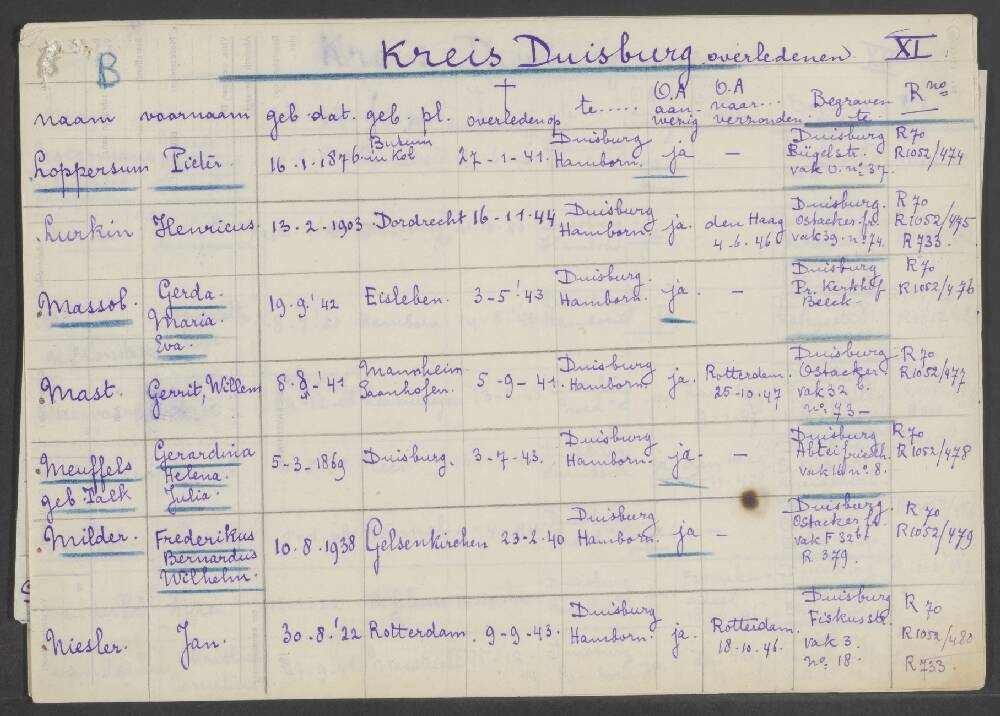 B Kreis Duisburg overledenen XI
naam voornaam geb. dat. geb. pl. † overleden op te...... O.A aan-wezig O.A naar... verzonden. Begraven te. R no
Loppersum Pieter 16.1.1876 in Kol 27-1-41. Duisburg Hamborn. ja — Duisburg Bügelstr. vak O. no 37. R70 R1052/474
Lurkin Henricus 13-2-1903 Dordrecht 16-11-44 Duisburg Hamborn. ja. den Haag 4-6-46 Duisburg. Ostacker.fr. vak 39. no 74. R 70 R1052/475 R733.
Massob. Gerda. Maria. Eva. 19.9.'42 Eisleben. 3-5-'43 Duisburg. Hamborn. ja. – Duisburg Pr. Kerkhof Beeck- R 70 R1052/476
Mast. Gerrit, Willem 8.8-'41 Mannheim Saanhofen. 5-9-41. Duisburg Hamborn. ja. Rotterdam. 25-10-47 Duisburg Ostacker vak 32 no 73- R 70 R1052/477
Meuffels geb. Palk Gerardina Helena. Julia. 5-3-1869 Duisburg. 3-7-43. Duisburg Hamborn. ja. – Duisburg Abteifriedh. vak 16 no 8. R 70 R1052/478
Milder. Frederikus Bernardus Wilhelm. 10.8.1938 Gelsenkirchen 23-2-40 Duisburg Hamborn. ja – Duisburg Ostacker fr. vak F 32 R 379. R 70 R1052/479
Niesler. Jan. 30-8.'22 Rotterdam. 9-9-43. Duisburg Hamborn. ja. Rotterdam. 18-10-46. Duisburg Fiskusstr. vak 3. no 18. R 70 R1052/480 R733.